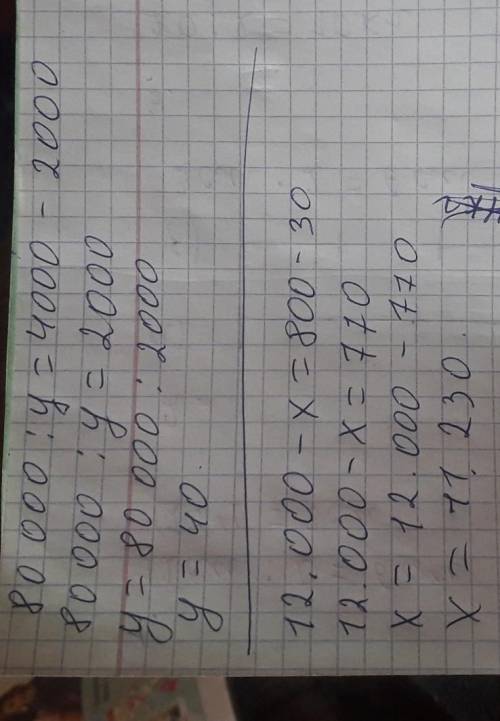 80 000 : y = 4000 - 2000
80 000 : y = 2000
y = 80 000 : 2000
y = 40.
12.000 - x = 800 - 30
12.000 - x = 770
x = 12.000 - 770
x = 11.230.